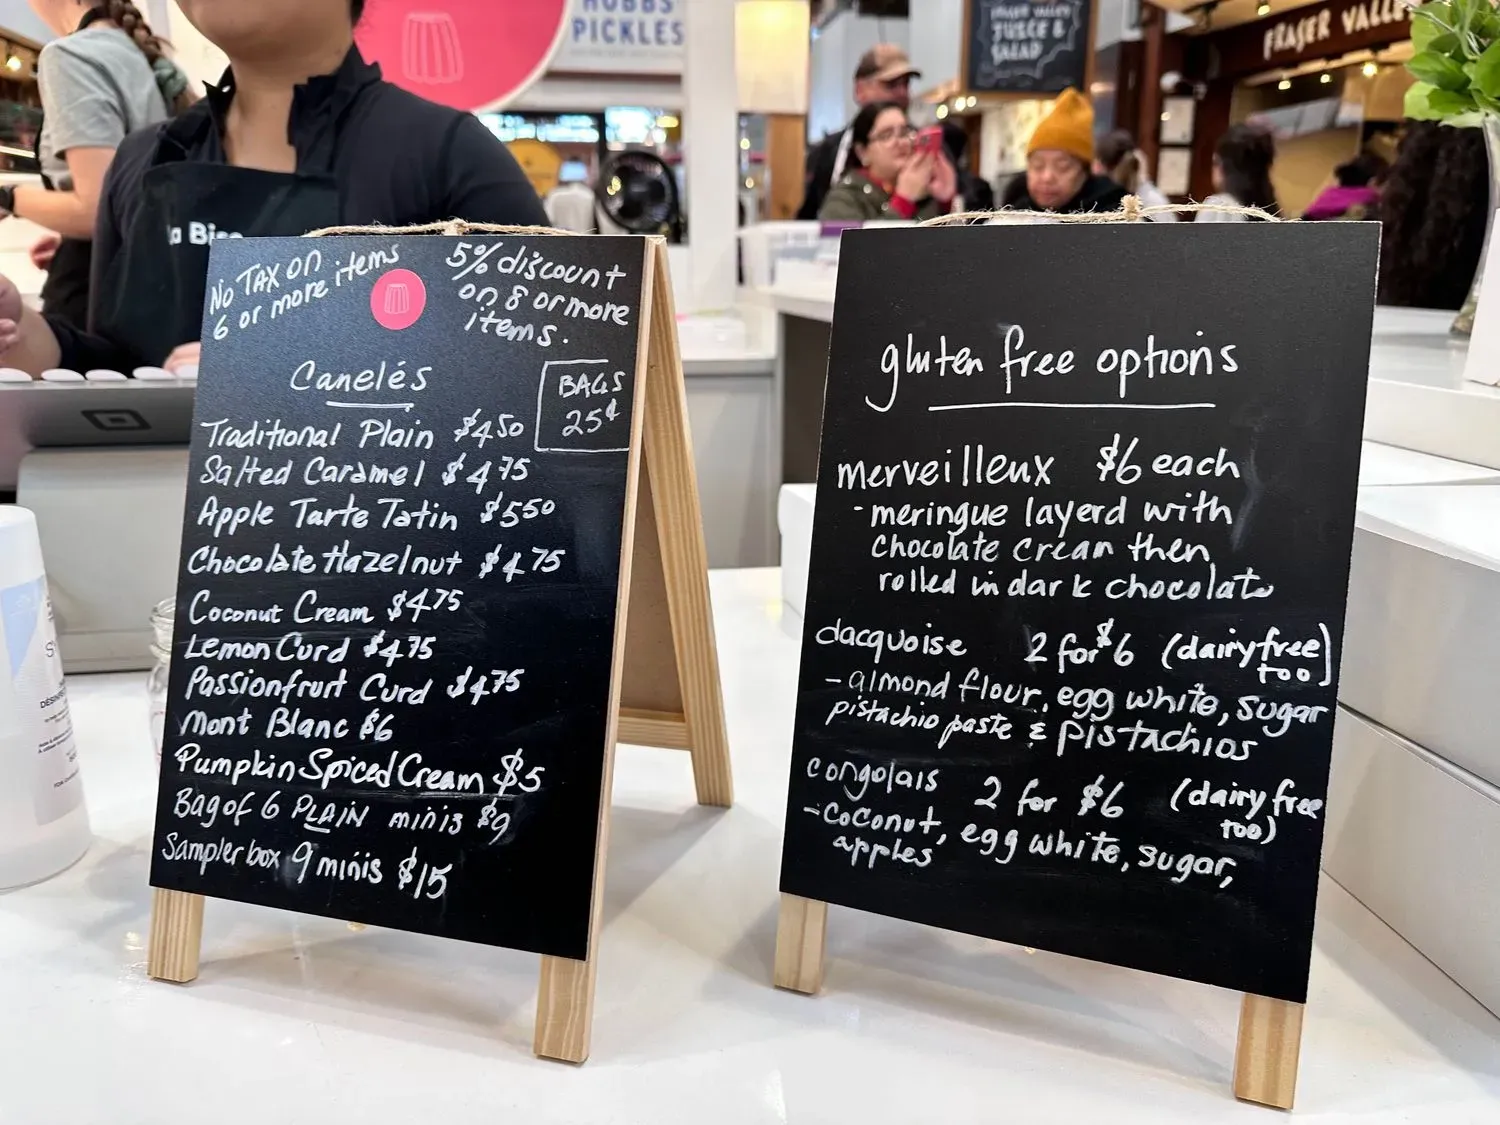 HOBBS'
PICKLES
FRASER VALLEY
JUICE &
SALAD
FRASER VALLEY
La Bise
NO TAX ON
6 or more items
5% discount
on 8 or more
items.
Canelés
BAGS
25¢
Traditional Plain $4.50
Salted Caramel $4.75
Apple Tarte Tatin $5.50
Chocolate Hazelnut $4.75
Coconut Cream $4.75
Lemon Curd $4.75
Passionfruit Curd $4.75
Mont Blanc $6
Pumpkin Spiced Cream $5
Bag of 6 PLAIN minis $9
Sampler box 9 minis $15
gluten free options
merveilleux $6 each
- meringue layerd with
chocolate cream then
rolled in dark chocolate
dacquoise 2 for $6 (dairy free
too)
- almond flour, egg white, sugar
pistachio paste & pistachios
congolais 2 for $6 (dairy free
too)
- coconut, egg white, sugar,
apples